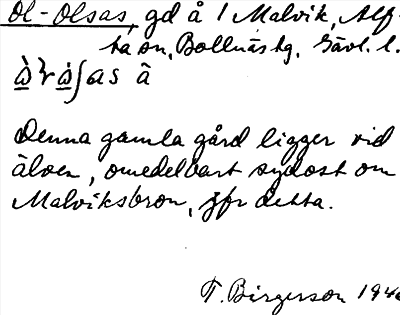 Ol-Olsas, gd å 1 Malvik, Alf-
ta sn, Bollnäs tg, Gävl. l.
â
Denna gamla gård ligger vid
älven, omedelbart sydost om
Malviksbron, jfr detta.
T. Birgerson 194